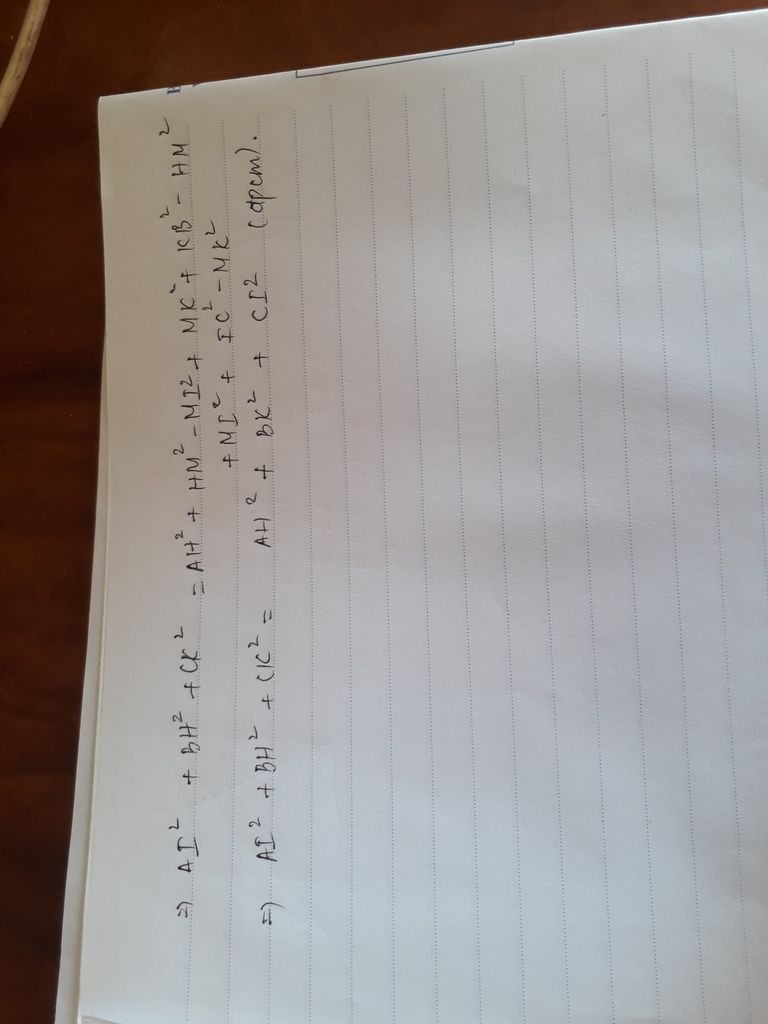 =) AI² + BH² + CK² = AH² + HM² - MI² + MK² + KB² - HM²
+ MI² + IC² - MK²
=) AI² + BH² + CK² = AH² + BK² + CI² (đpcm).